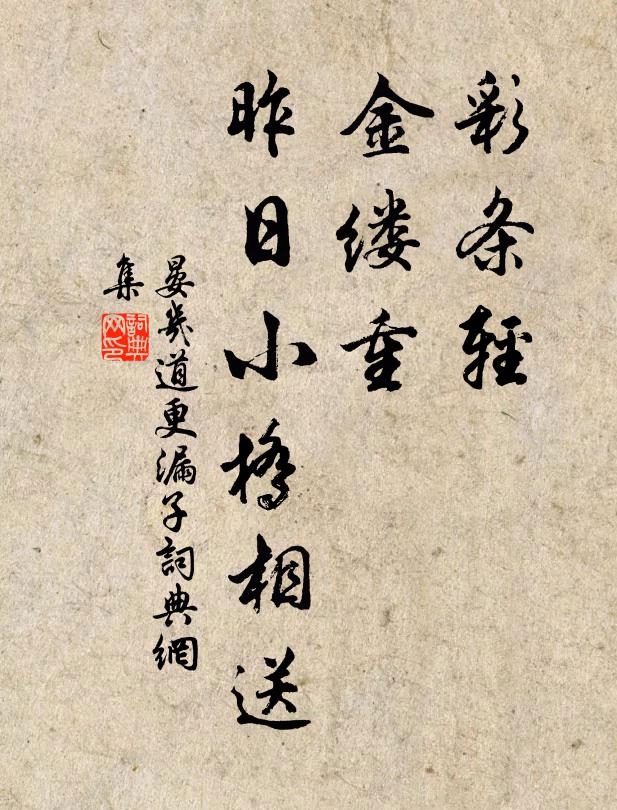 彩条輕
金缕重
昨日小橋相送
晏幾道更漏子詞典網
集
詞典
网印